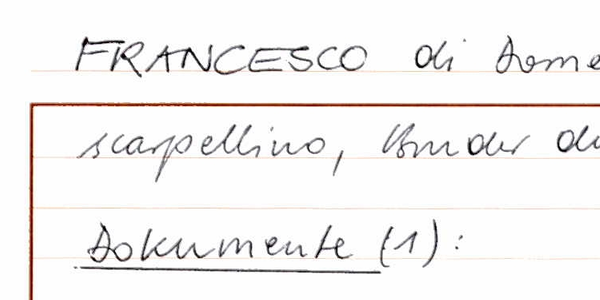 FRANCESCO di Dome
scarpellino, Bruder de
Dokumente (1):